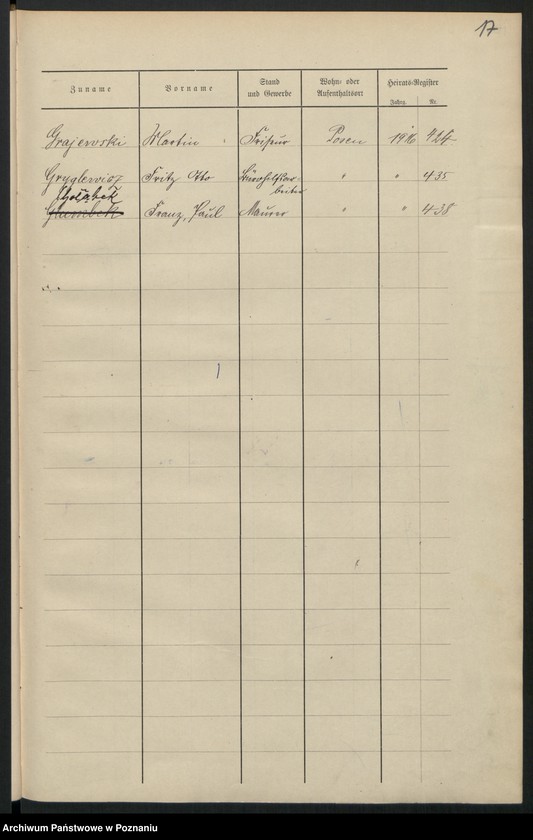 17
Zuname Vorname Stand und Gewerbe Wohn- oder Aufenthaltsort Heirats-Register
Jahrg. Nr.
Grajewski Martin Friseur Posen 1916 424
Gryglewicz Fritz Otto Bürohilfsar- " " 435
beiter
Franz, Paul Maurer " " 438
Archiwum Państwowe w Poznaniu